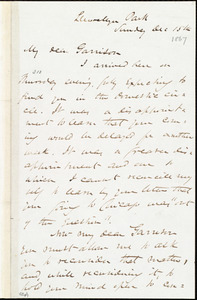 Llewellyn Park
Sunday Dec 15th
1867
My dear Garrison
I arrived here on
Thursday evening, fully expecting to
find you in the domestic cir-
cle. It was a disappoint-
ment to learn that your com-
ing would be delayed for another
week. It was a greater dis-
appointment and one to
which I cannot reconcile my
self to learn by your letter that
your going to Chicago was "out
of the question."
Now my dear Garrison
you must allow me to ask
you to reconsider that matter,
and, while considering it, to
hold your mind open to con-